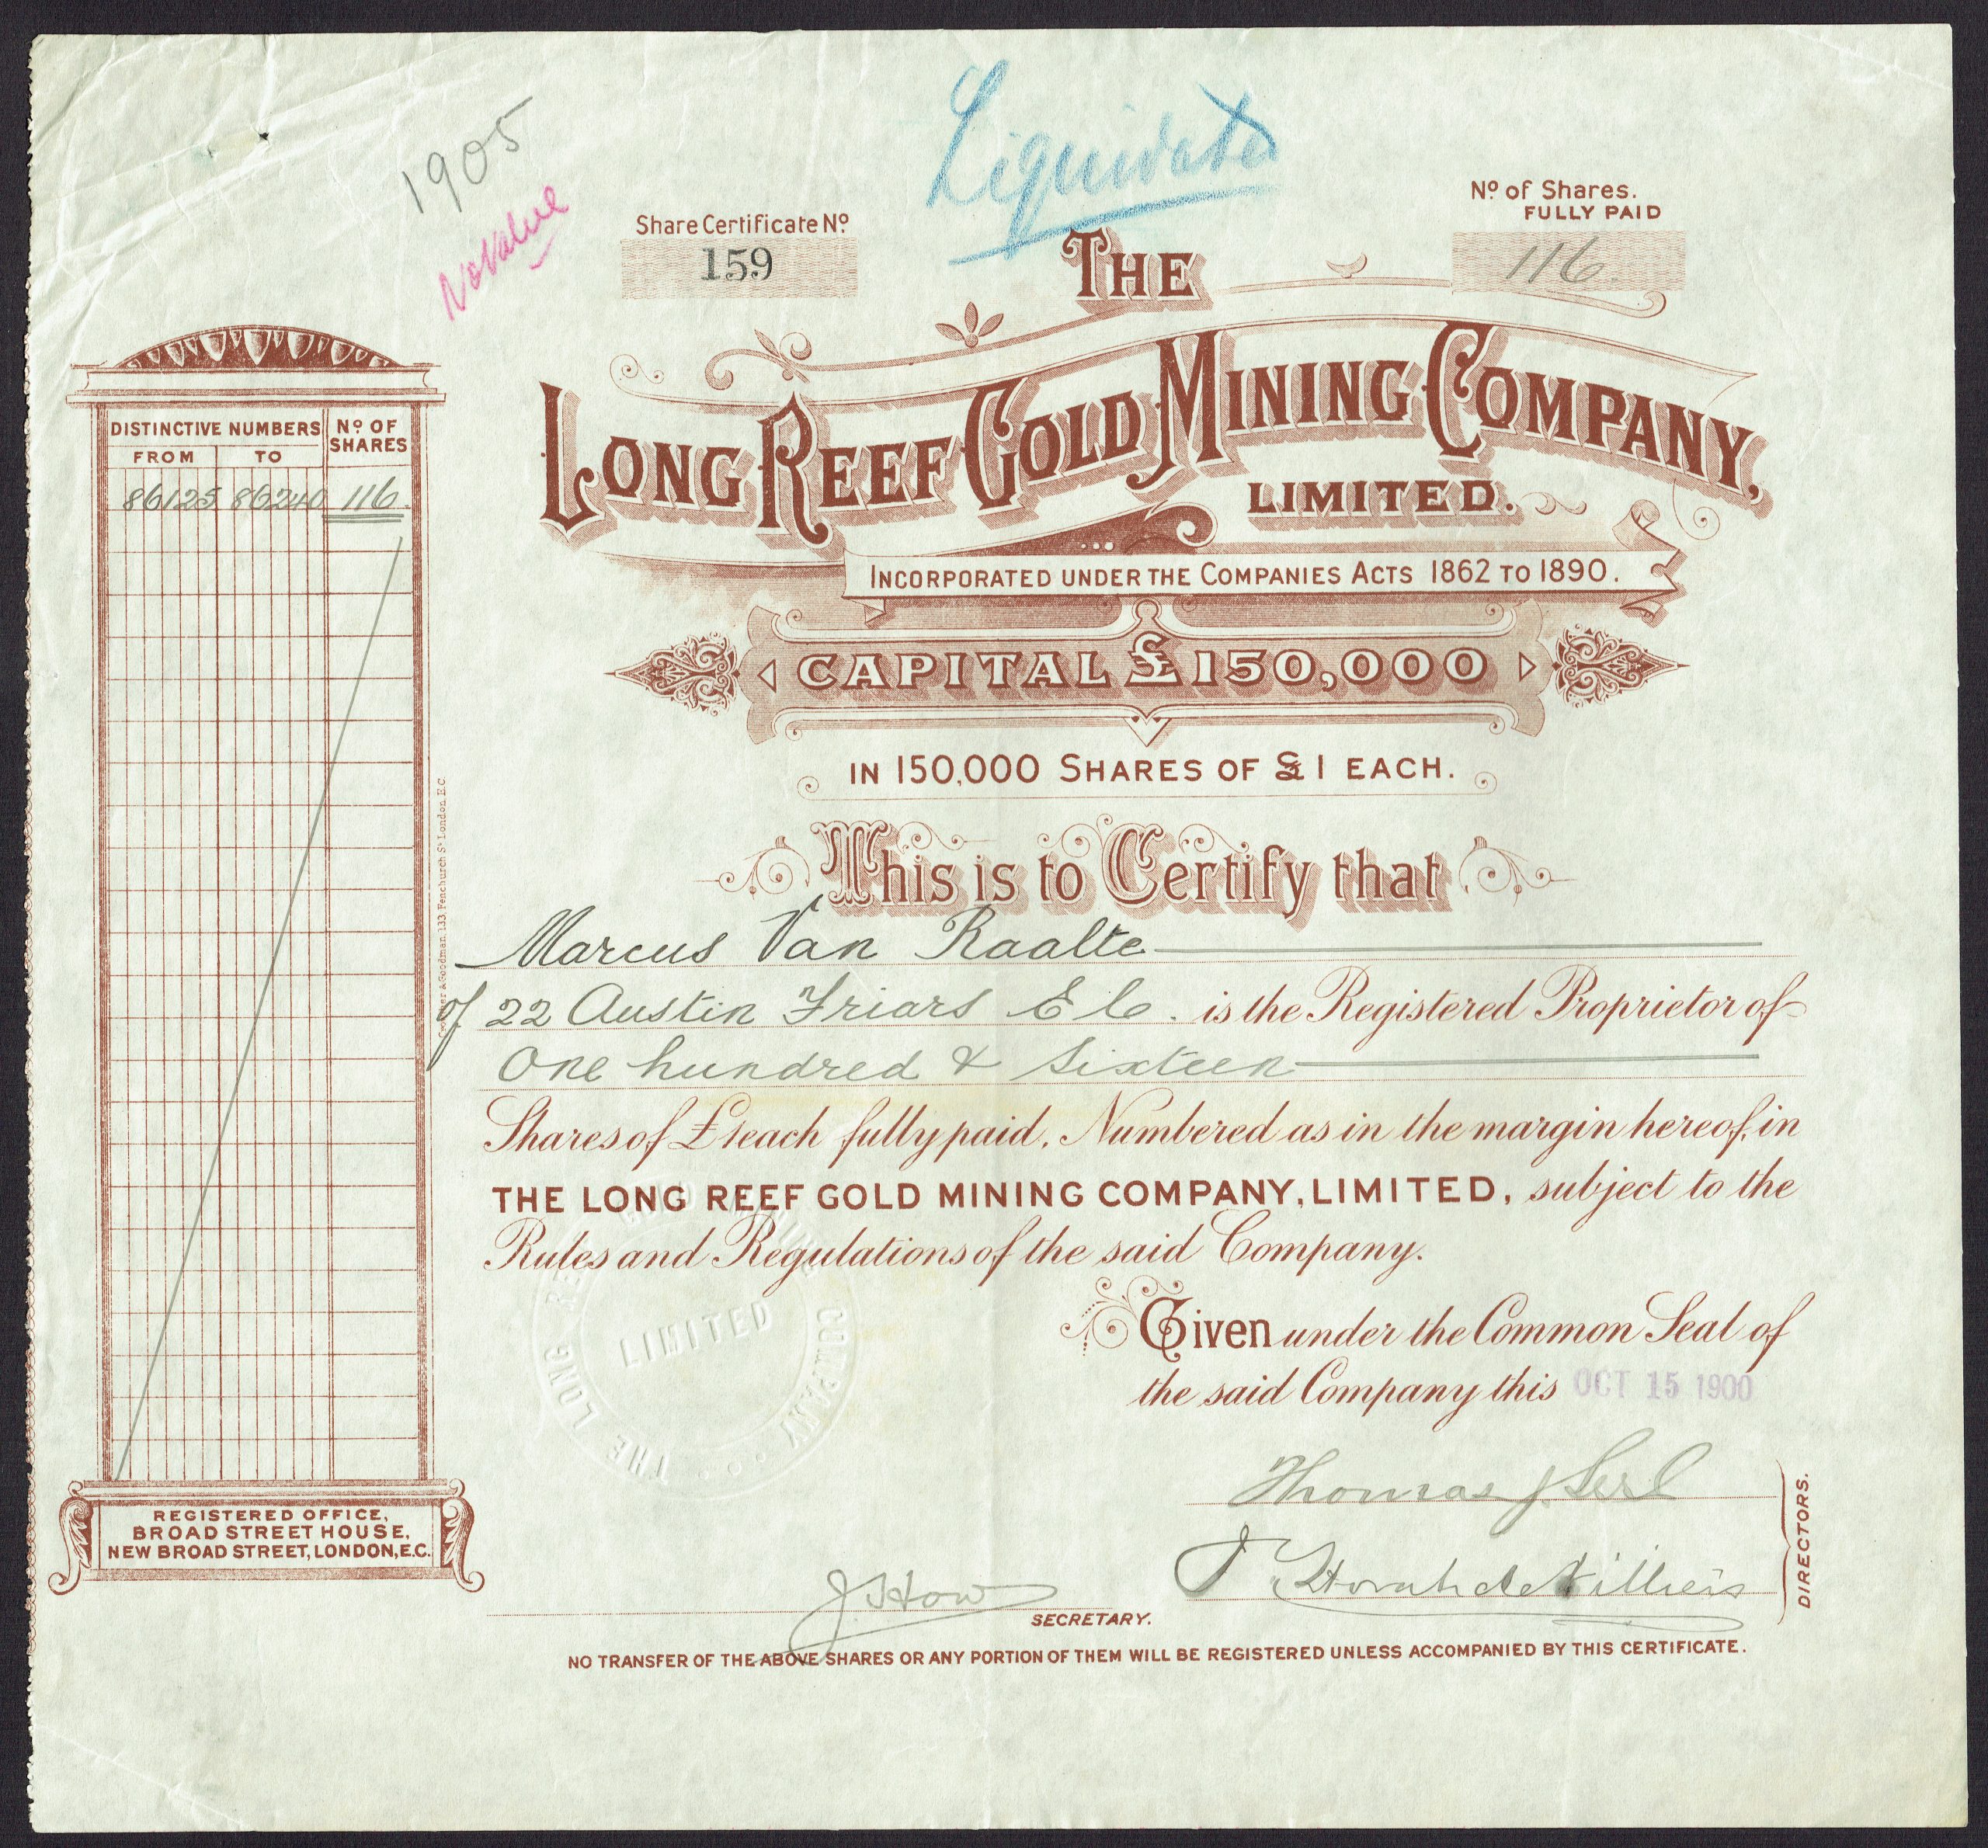 1905
No Value
Liquidated
Share Certificate No.
159
No. of Shares.
FULLY PAID
116.
THE
LONG REEF GOLD MINING COMPANY,
LIMITED.
INCORPORATED UNDER THE COMPANIES ACTS 1862 TO 1890.
CAPITAL £150,000
IN 150,000 SHARES OF £1 EACH.
This is to Certify that
Marcus Van Raalte
of 22 Austin Friars E C. is the Registered Proprietor of
One hundred & Sixteen
Shares of £1 each fully paid, Numbered as in the margin hereof, in
THE LONG REEF GOLD MINING COMPANY, LIMITED, subject to the
Rules and Regulations of the said Company.
Given under the Common Seal of
the said Company this OCT 15 1900
Thomas J.
DIRECTORS.
J How
SECRETARY.
NO TRANSFER OF THE ABOVE SHARES OR ANY PORTION OF THEM WILL BE REGISTERED UNLESS ACCOMPANIED BY THIS CERTIFICATE.
DISTINCTIVE NUMBERS
No. OF SHARES
FROM TO
86125 86240 116.
REGISTERED OFFICE,
BROAD STREET HOUSE,
NEW BROAD STREET, LONDON, E.C.
& Goodman 133, Fenchurch St. London. E.C.
THE LONG REEF GOLD MINING COMPANY
LIMITED